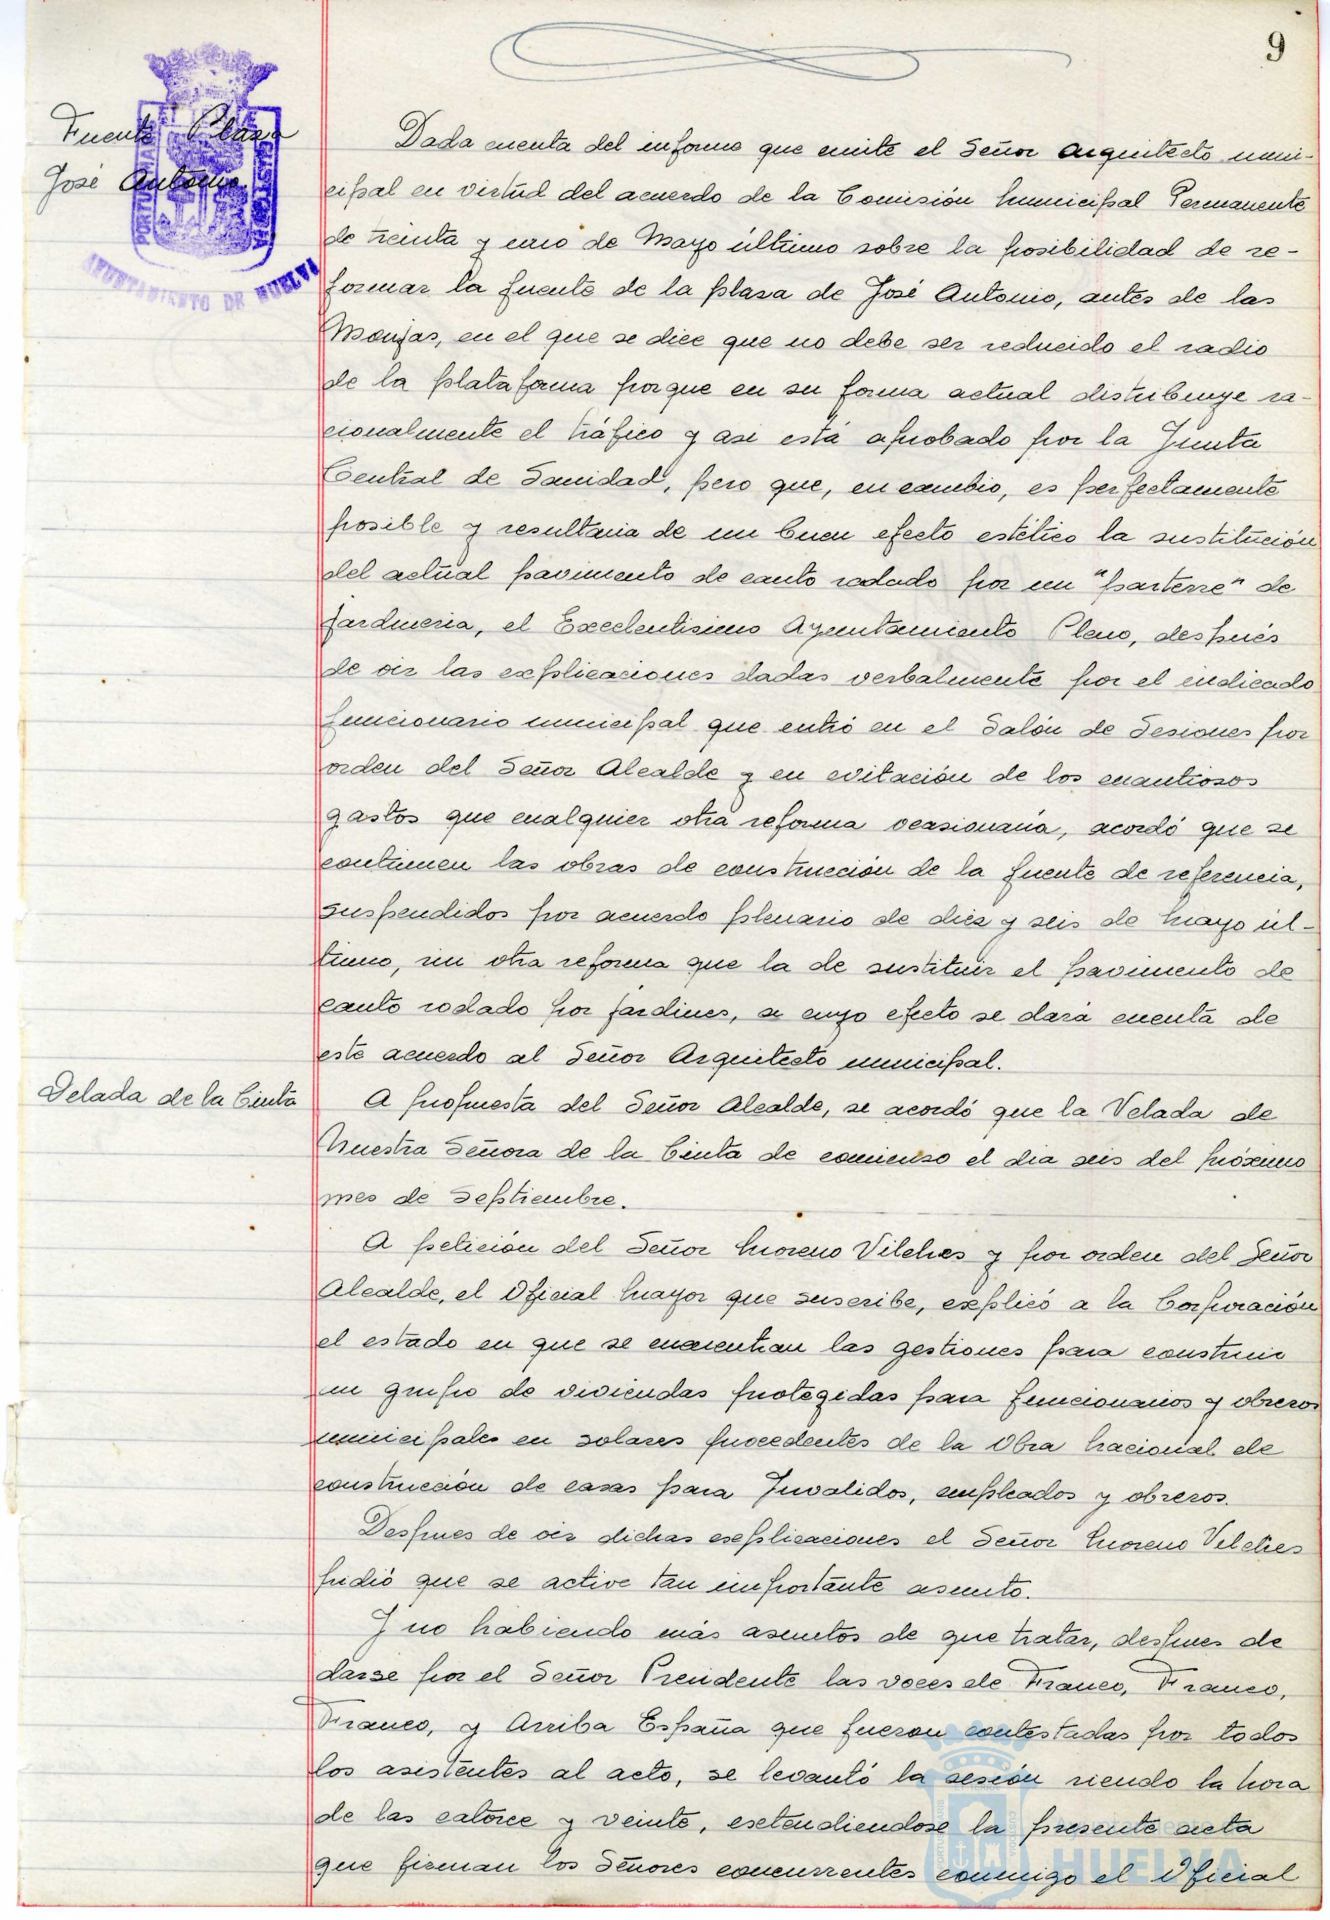 9
Fuente Plaza
José Antonio.
PORTUS MARIS ET TERRE CUSTODIA
AYUNTAMIENTO DE HUELVA
Dada cuenta del informe que emite el Señor Arquitecto muni-
cipal en virtud del acuerdo de la Comisión Municipal Permanente
de treinta y uno de Mayo último sobre la posibilidad de re-
formar la fuente de la plaza de José Antonio, antes de las
Monjas, en el que se dice que no debe ser reducido el radio
de la plataforma porque en su forma actual distribuye ra-
cionalmente el tráfico y asi está aprobado por la Junta
Central de Sanidad, pero que, en cambio, es perfectamente
posible y resultaria de un buen efecto estético la sustitución
del actual pavimento de canto rodado por un "parterre" de
jardineria, el Excelentisimo Ayuntamiento Pleno, después
de oir las explicaciones dadas verbalmente por el indicado
funcionario municipal que entró en el Salón de Sesiones por
orden del Señor Alcalde y en evitación de los cuantiosos
gastos que cualquier otra reforma ocasionaria, acordó que se
continuen las obras de construcción de la fuente de referencia,
suspendidos por acuerdo plenario de diez y seis de Mayo úl-
timo, sin otra reforma que la de sustituir el pavimento de
canto rodado por jardines, a cuyo efecto se dará cuenta de
este acuerdo al Señor Arquitecto municipal.
Velada de la Cinta
A propuesta del Señor Alcalde, se acordó que la Velada de
Nuestra Señora de la Cinta de comienzo el dia seis del próximo
mes de Septiembre.
A petición del Señor Moreno Vilches y por orden del Señor
Alcalde, el Oficial Mayor que suscribe, explicó a la Corporación
el estado en que se encuentran las gestiones para construir
un grupo de viviendas protegidas para funcionarios y obreros
municipales en solares procedentes de la Obra Nacional de
construcción de casas para Invalidos, empleados y obreros.
Despues de oir dichas explicaciones el Señor Moreno Vilches
pidió que se active tan importante asunto.
Y no habiendo más asuntos de que tratar, despues de
darse por el Señor Presidente las voces de Franco, Franco,
Franco, y Arriba España que fueron contestadas por todos
los asistentes al acto, se levantó la sesión siendo la hora
de las catorce y veinte, extendiendose la presente acta
que firman los Señores concurrentes conmigo el Oficial
HUELVA